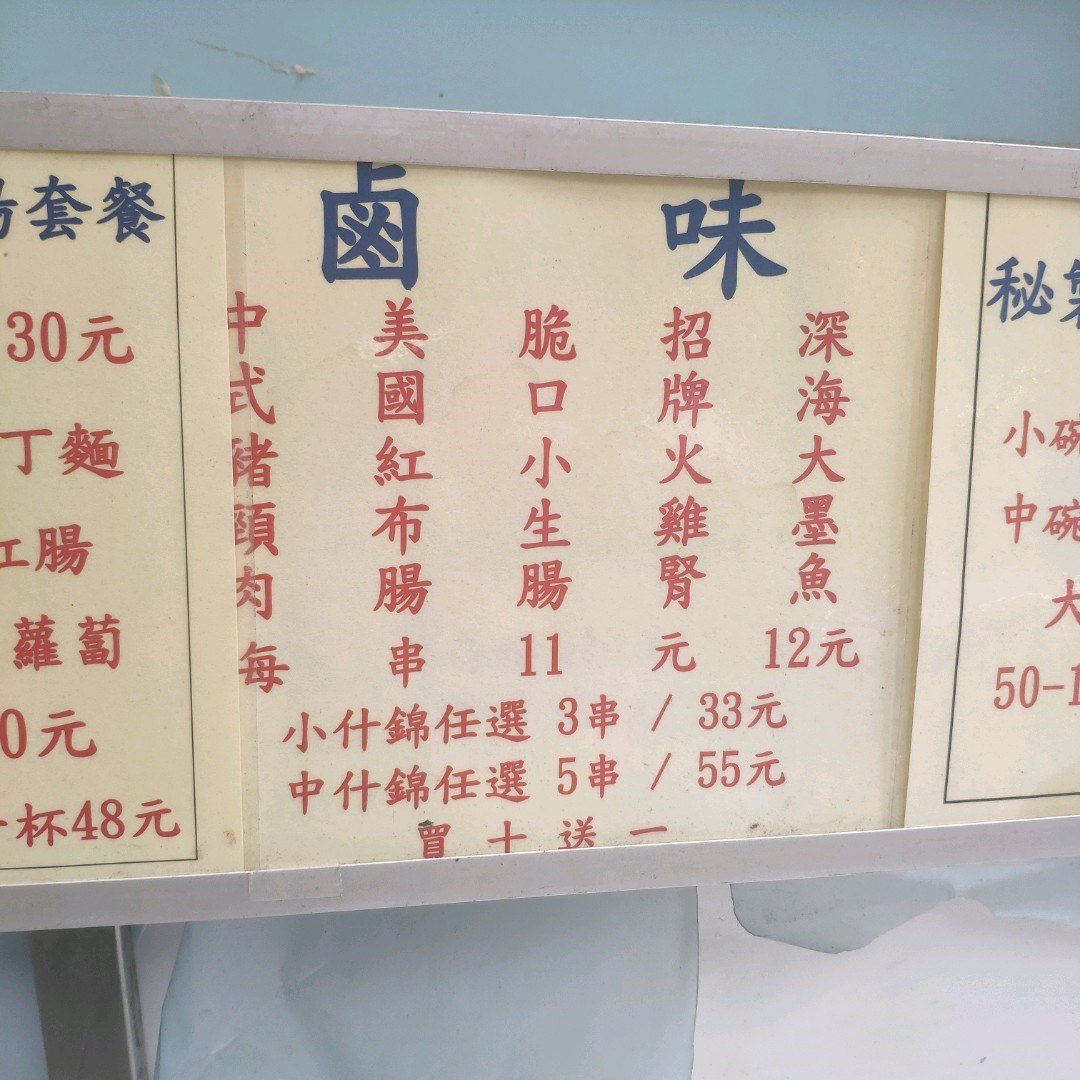 套餐
30元
丁麵
紅腸
蘿蔔
0元
杯48元
鹵味
中式豬頸肉
美國紅布腸
脆口小生腸
招牌火雞腎
深海大墨魚
每串11元 12元
小什錦任選 3串 / 33元
中什錦任選 5串 / 55元
買十送一
秘製
小碗
中碗
大
50-1